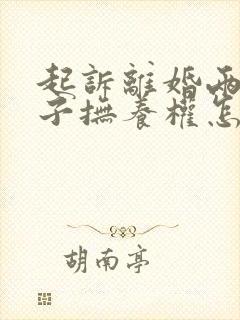 起訴離婚兩
子撫養權怎
胡南亭